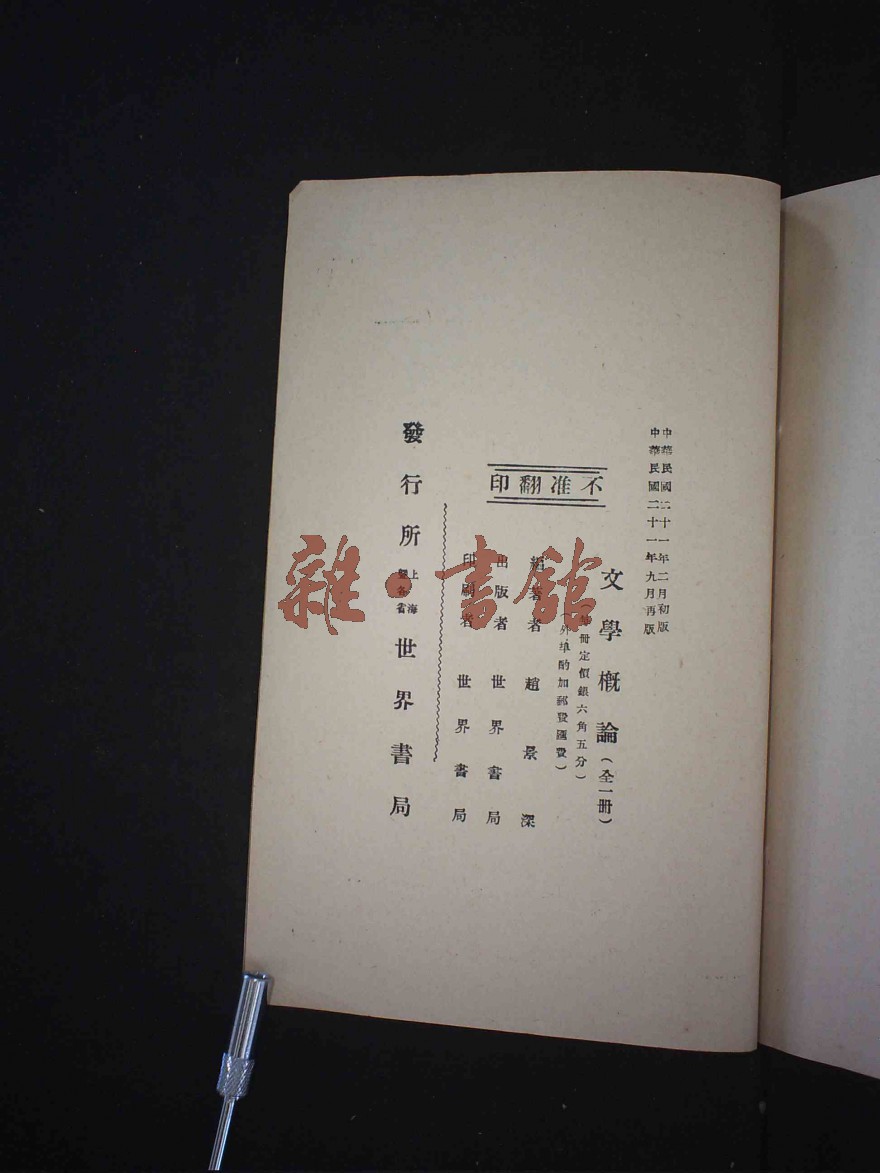 中華民國二十一年二月初版
中華民國二十一年九月再版
文學概論(全一冊)
冊定價銀六角五分)
外埠酌加郵費匯費)
不准翻印
編著者 趙景深
出版者 世界書局
印刷者 世界書局
發行所 上海暨各省 世界書局
雜·書館